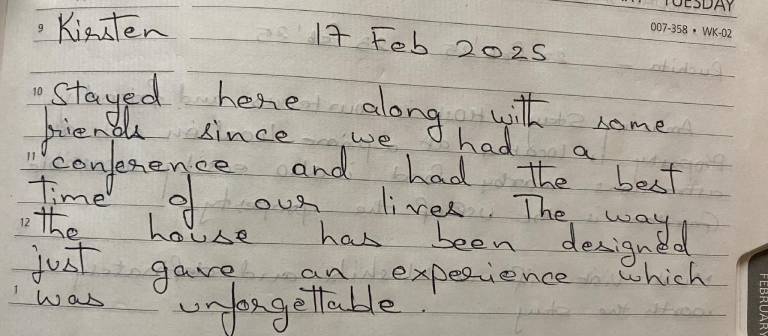 TUESDAY
007-358 • WK-02
9 Kirsten 17 Feb 2025
10 Stayed here along with some
friends since we had a
11 conference and had the best
time of our lives. The way
12 the house has been designed
just gave an experience which
1 was unforgettable.
FEBRUARY